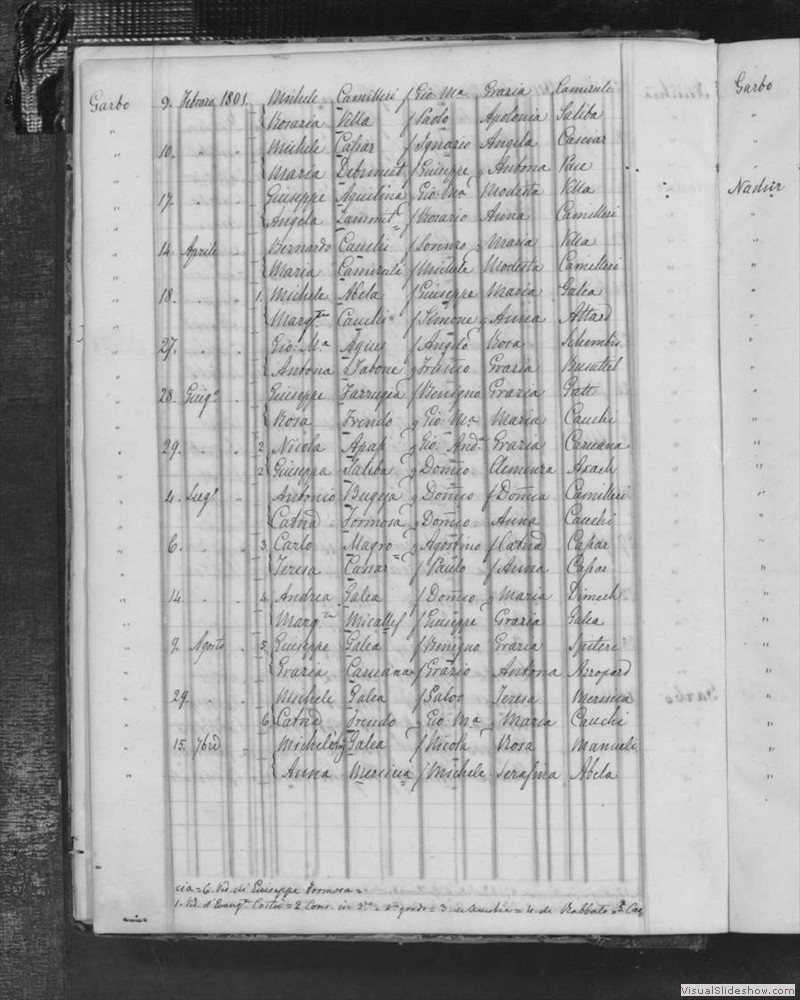 Garbo 9. Febraro 1801. Michele Camilleri f Gio Mª Grazia Camiruli
" Rosaria Villa f Paolo Apolonia Saliba
" 10. " " Michele Capar f Ignazio Angela
" Maria f Giuseppe g Antona Pace
" 17. " " Giuseppe Aquilina g Gio Mª Modesta Villa
" Angela Zammit = f Rosario Anna Camilleri
" 14. Aprile " Bernardo Cauchi f Lorenzo g Maria Villa
" Maria Camiruli f Michele Modesta Camilleri
" 18. " " 1. Michele Abela f Giuseppe Maria Galea
" Margta Cauchi = f Simone g Anna Attard
" 27. " " Gio: Mª Agius f Angelo Rosa Schembri
" Antona Tabone g Franco Grazia Busuttil
" 28. Giugº " Giuseppe Farrugia f Benigno Grazia Gatt
" Rosa Trendo g Gio: Mª Maria Cauchi
" 29. " " 2 Nicola Apap g Gio: Andª Grazia Caruana
" 2 Giuseppa Saliba g Domco Clemenza Axach
" 4. Lugº " Antonio Bugeja g Domco f Domca Camilleri
" Catnà Formosa g Domco Anna Cauchi
" 6. " " 3. Carlo Magro = g Agostino f Catnà Capar
" Teresa f Paulo f Anna Capar
" 14. " " 4. Andrea Galea f Domco g Maria Dimech
" Margta Micallef f Giuseppe Grazia Galea
" 9. Agosto " 5. Giuseppe Galea f Benigno Grazia Spiteri
" Grazia Caruana = f Grazio Antona Azzopard
" 29. " " Michele Galea f Salvo Teresa Mercieca
" 6. Catnà Trendo g Gio: Mª g Maria Cauchi
" 15. 7bre " Galea f Nicola Rosa
" Anna Mercieca f Michele Serafina Abela
cia = 6. Vid. di Giuseppe Formosa =
1. Vid. d'Evangta = 2 Cons. in 3º = grado = 3. = 4. de Rabbato =
Garbo
Nadur
VisualSlideshow.com